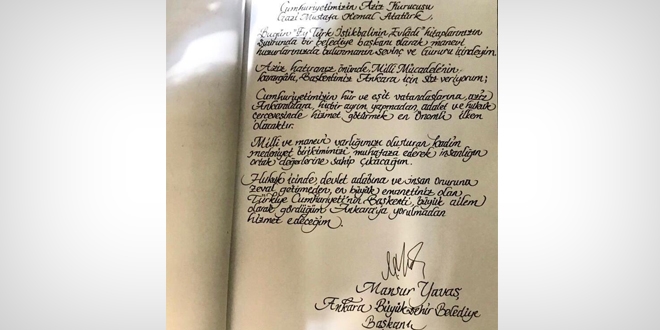 Cumhuriyetimizin Aziz Kurucusu
Gazi Mustafa Kemal Atatürk,
Bugün "Ey Türk İstikbalinin Evlâdı" hitaplarınızın
şuurunda bir belediye başkanı olarak manevi
huzurlarınızda bulunmanın sevinç ve Gururu içindeyim.
Aziz hatıranız önünde, Milli Mücadele'nin
karargâhı, Başkentimiz Ankara için söz veriyorum;
Cumhuriyetimizin hür ve eşit vatandaşlarına, aziz
Ankaralılara hiçbir ayrım yapmadan, adalet ve hukuk
çerçevesinde hizmet götürmek en önemli ilkem
olacaktır.
Milli ve manevi varlığımızı oluşturan kadim
medeniyet birikimimizi muhafaza ederek insanlığın
ortak değerlerine sahip çıkacağım.
Hukuk içinde, devlet adabına ve insan onuruna
zeval getirmeden, en büyük emanetiniz olan
Türkiye Cumhuriyeti'nin Başkenti, büyük ailem
olarak gördüğüm Ankara'ya yorulmadan
hizmet edeceğim.
Mansur Yavaş
Ankara Büyükşehir Belediye
Başkanı